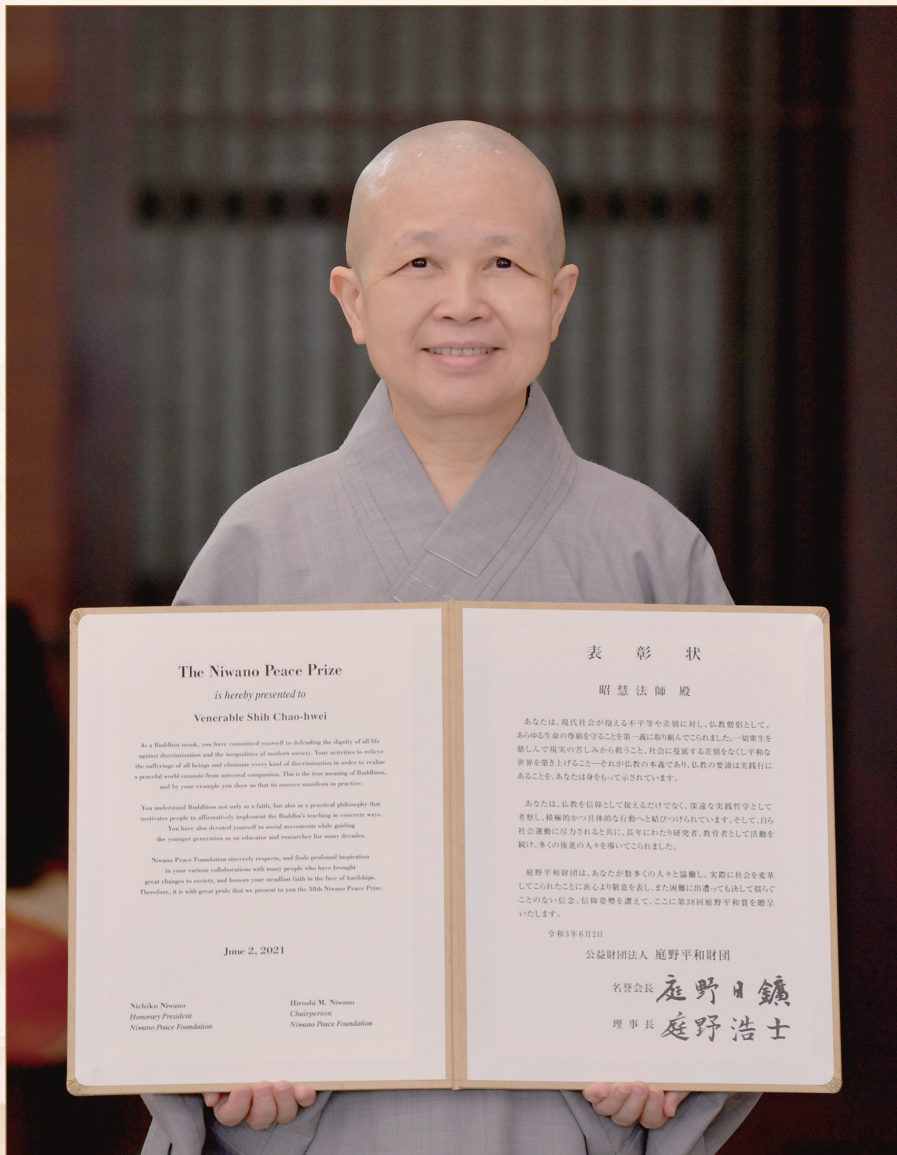 The Niwano Peace Prize
is hereby presented to
Venerable Shih Chao-hwei
As a Buddhist monk, you have committed yourself to defending the dignity of all life
against discrimination and the inequalities of modern society. Your activities to relieve
the sufferings of all beings and eliminate every kind of discrimination in order to realize
a peaceful world emanate from universal compassion. This is the true meaning of Buddhism,
and by your example you show us that its essence manifests in practice.
You understand Buddhism not only as a faith, but also as a practical philosophy that
motivates people to affirmatively implement the Buddha's teaching in concrete ways.
You have also devoted yourself to social movements while guiding
the younger generation as an educator and researcher for many decades.
Niwano Peace Foundation sincerely respects, and finds profound inspiration
in your various collaborations with many people who have brought
great changes to society, and honors your steadfast faith in the face of hardships.
Therefore, it is with great pride that we present to you the 38th Niwano Peace Prize.
June 2, 2021
Nichiko Niwano
Honorary President
Niwano Peace Foundation
Hiroshi M. Niwano
Chairperson
Niwano Peace Foundation
表 彰 状
昭慧法師 殿
あなたは、現代社会が抱える不平等や差別に対し、仏教僧侶として、
あらゆる生命の尊厳を守ることを第一義に取り組んでこられました。一切衆生を
慈しんで現実の苦しみから救うこと、社会に蔓延する差別をなくし平和な
世界を築き上げること―それが仏教の本義であり、仏教の要諦は実践行に
あることを、あなたは身をもって示されています。
あなたは、仏教を信仰として捉えるだけでなく、深遠な実践哲学として
考察し、積極的かつ具体的な行動へと結びつけられています。そして、自ら
社会運動に尽力されると共に、長年にわたり研究者、教育者として活動を
続け、多くの後進の人々を導いてこられました。
庭野平和財団は、あなたが数多くの人々と協働し、実際に社会を変革
してこられたことに衷心より敬意を表し、また困難に出遭っても決して揺らぐ
ことのない信念、信仰姿勢を讃えて、ここに第38回庭野平和賞を贈呈
いたします。
令和3年6月2日
公益財団法人 庭野平和財団
名誉会長 庭野日鑛
理事長 庭野浩士